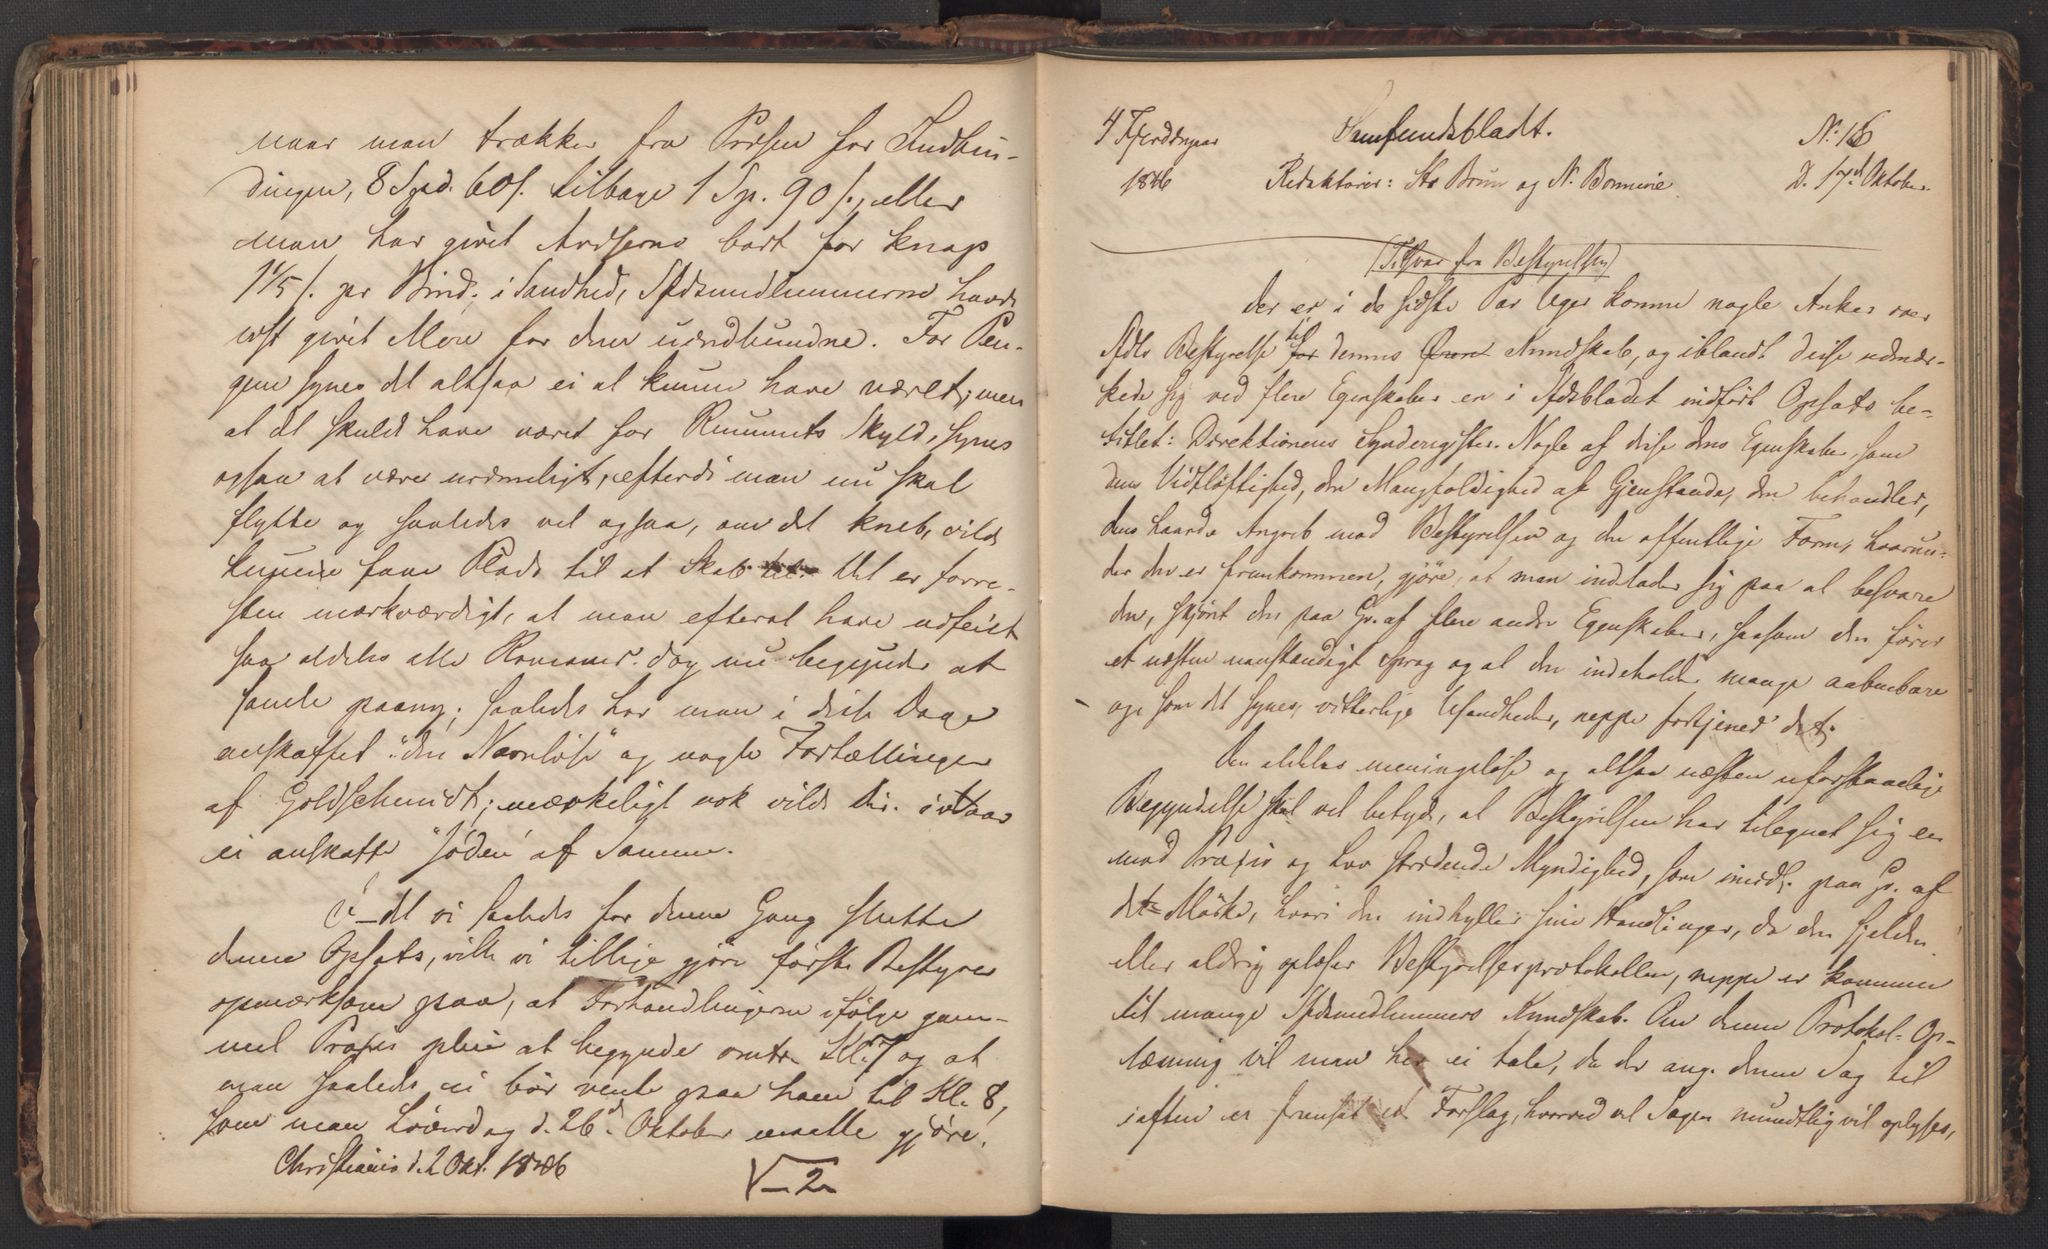 naar man trækker fra Prisen for Indbin-
dingen, 8 Spd. 60 s. tilbage 1 Sp. 90 s., eller
man har givet Aviserne bort for knap
1 1/5 s. pr Bind. i Sandhed, Sfdsmedlemmerne havde
vist givet Mere for dem uindbundne. For Pen-
gene synes det altsaa ei at kunne have været; men
at det skulde have været for Rummets Skyld, synes
ogsaa at være urimeligt, efterdi man nu skal
flytte og saaledes vel ogsaa, om det kneb, vilde
kunne faae Plads til et Skab til. Det er forre-
sten mærkværdigt, at man efterat have udfeiet
saa aldeles alle Romaner dog nu begynder at
samle paany; saaledes har man i disse Dage
anskaffet "den Navnløse" og nogle Fortællinger
af Goldschmidt; mærkeligt nok vilde Dir. ivaar
ei anskaffe "Jøden" af Samme.
I det vi saaledes for denne Gang slutte
denne Opsats, ville vi tillige gjøre første Bestyrer
opmærksom paa, at Forhandlingerne ifølge gam-
mel Praxis pleie at begynde omtr. Kl. 7 og at
man saaledes ei bør vente paa ham til Kl. 8,
som man Løverdag d. 26d Oktober maatte gjøre.
Christiania d. 2 Okt. 1846
V-2
4 Fjerdingaar
Samfundsbladt.
No. 16
1846
Redaktører: St. Brun og N. Bonnevie
D. 17d Oktober.
(Tilsvar fra Bestyrelsen)
Der er i de sidste Par Uger komne nogle Anker over
Sfdts Bestyrelse for til dennes Kundskab, og iblandt disse udmær-
kede sig ved flere Egenskaber en i Sfdsbladet indført Opsats be-
titlet: Direktionens Synderegister. Nogle af disse dens Egenskaber, som
dens Vidtløftighed, den Mangfoldighed af Gjenstande, den behandler,
dens haarde Angreb mod Bestyrelsen og den offentlige Form, hvorun-
der den er fremkommen, gjøre, at man indlader sig paa at besvare
den, skjønt den paa Gr. af flere andre Egenskaber, saasom den fører
et næsten uanstændigt Sprog og at den indeholder mange aabenbare
og, som det synes, vitterlige Usandheder, neppe fortjener det.
Den aldeles meningsløse og altsaa næsten uforstaaelige
Begyndelse skal vel betyde, at Bestyrelsen har tilegnet sig en
mod Praxis og Lov stridende Myndighed, som imidl. paa Gr. af
det Mørke, hvori den indhyller sine Handlinger, da den sjelden
eller aldrig oplæser Bestyrelsesprotokollen, neppe er kommen
til mange Sfdsmedlemmers Kundskab. Om denne Protokol-Op-
læsning vil man her ei tale, da der ang. denne Sag til
iaften er fremsat et Forslag, hvorved vel Sagen mundtlig vil oplyses,